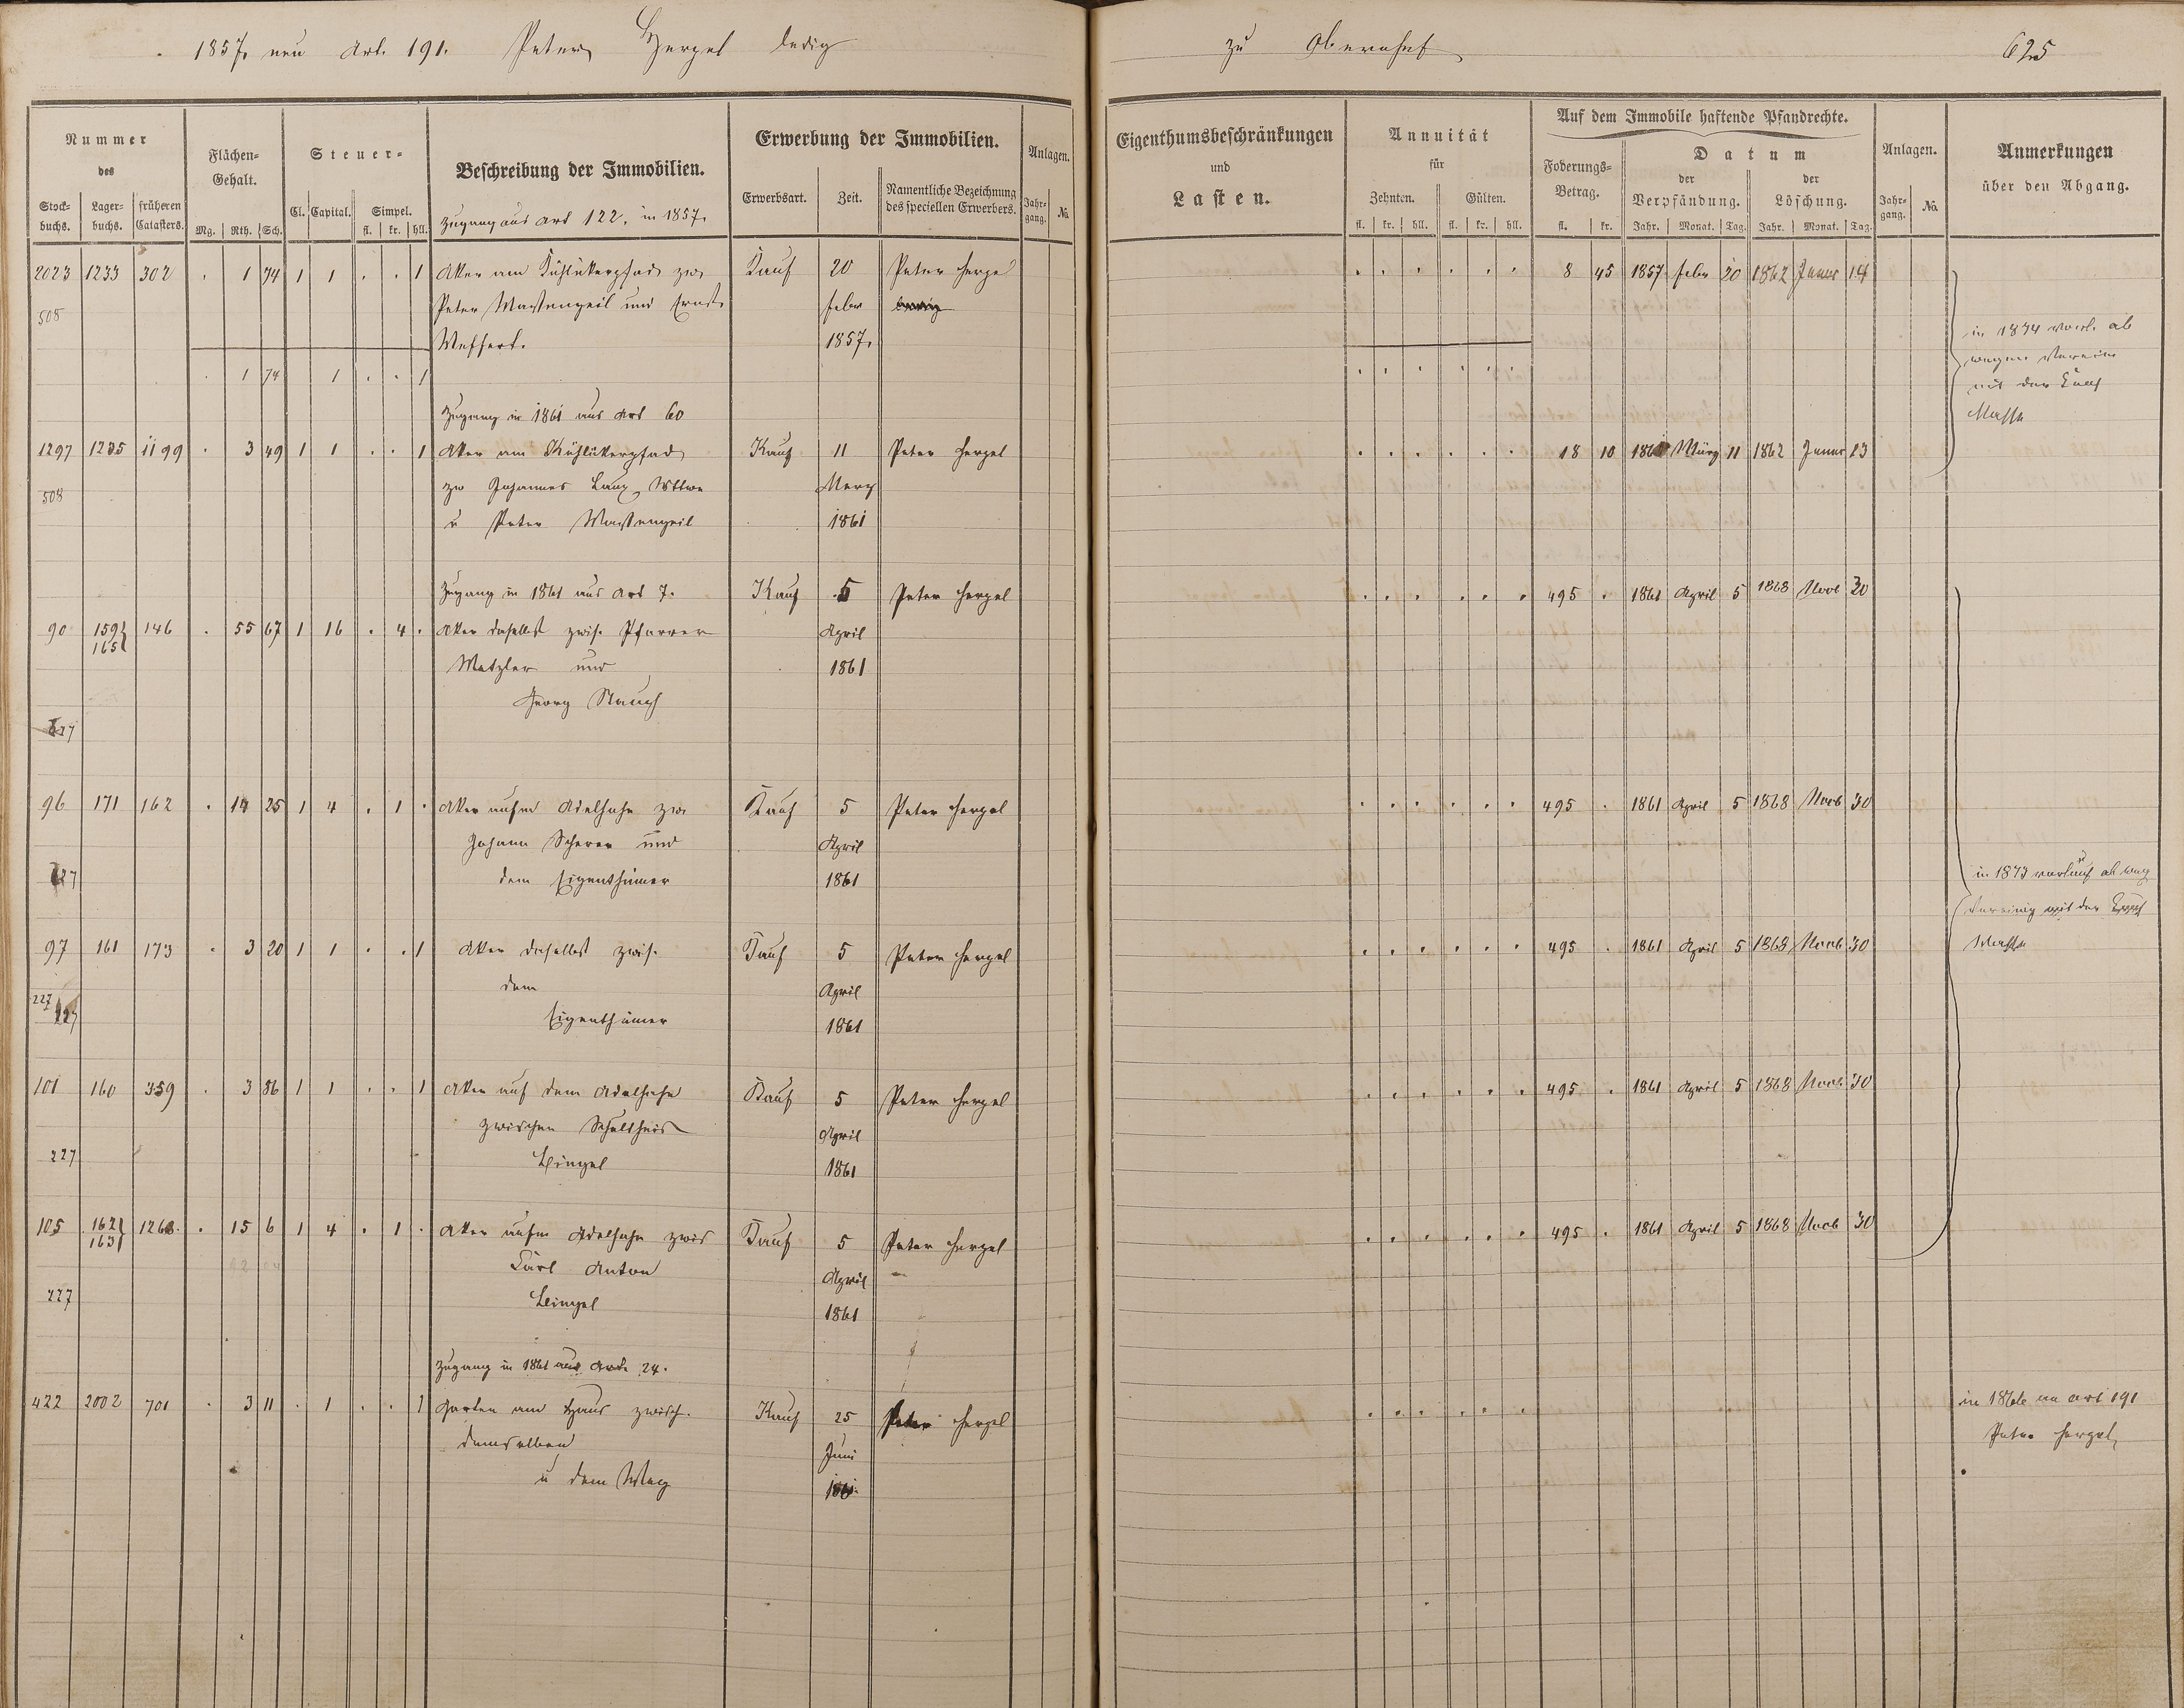 1857 neu Art. 191. Peter Hergel ledig
zu Obernhof
625
Nummer
des
Stock-
buchs.
Lager-
buchs.
früheren
Catasters.
Flächen-
Gehalt.
Mg. Rth. Sch.
Steuer-
Cl. Capital. Simpel.
fl. kr. hll.
Beschreibung der Immobilien.
Zugang aus Art 122. in 1857.
Erwerbung der Immobilien.
Erwerbsart. Zeit. Namentliche Bezeichnung
des speciellen Erwerbers.
Anlagen.
Jahr-
gang. No.
Eigenthumsbeschränkungen
und
Lasten.
Annuität
für
Zehnten. Gülten.
fl. kr. hll. fl. kr. hll.
Auf dem Immobile haftende Pfandrechte.
Foderungs-
Betrag.
fl. kr.
Datum
der
Verpfändung.
Jahr. Monat. Tag.
der
Löschung.
Jahr. Monat. Tag.
Anlagen.
Jahr-
gang. No.
Anmerkungen
über den Abgang.
2023 1233 302 . 1 74 1 1 . . 1 Aker am zw. Kauf 20 Peter Hergel . . . . . . 8 45 1857 febr 20 1862 Januar 14
508 Peter und Ernst febr ledig
1857.
. 1 74 1 . . 1 . . . . . .
in 1874 ab
wegen
mit der
Masse
Zugang in 1861 aus Art 60
1297 1235 1199 . 3 49 1 1 . . 1 Aker am Kauf 11 Peter Hergel . . . . . . 18 10 1861 März 11 1862 Januar 23
508 zw Johannes Wittwe Merz
u Peter 1861
Zugang in 1861 aus Art 7. Kauf 5 Peter Hergel . . . . . . 495 . 1861 April 5 1868 Novb 30
90 159 146 . 55 67 1 16 . 4 . Aker daselbst zwis. Pfarrer April
165 Metzler und 1861
Georg
227
96 171 162 . 14 25 1 4 . 1 . Aker aufm zw. Kauf 5 Peter Hergel . . . . . . 495 . 1861 April 5 1868 Novb 30
Johann Scherer und April
227 dem Eigenthümer 1861
in 1873 ab weg
Vereinig mit der
Masse
97 161 173 . 3 20 1 1 . . 1 Aker daselbst zwis. Kauf 5 Peter Hergel . . . . . . 495 . 1861 April 5 1868 Novb 30
227 dem April
Eigenthümer 1861
101 160 359 . 3 86 1 1 . . 1 Aker auf dem Kauf 5 Peter Hergel . . . . . . 495 . 1861 April 5 1868 Novb 30
zwischen Schultheis April
227 1861
105 162 1268. . 15 6 1 4 . 1 . Aker aufm zwis Kauf 5 Peter Hergel . . . . . . 495 . 1861 April 5 1868 Novb 30
163 Carl Anton April
227 1861
Zugang in 1861 aus Art. 24.
422 2002 701 . 3 11 . 1 . . 1 Garten am Haus zwisch. Kauf 25 Peter Hergel . . . . . .
demselben Juni
u dem Weg
in an Art 191
Peter Hergel